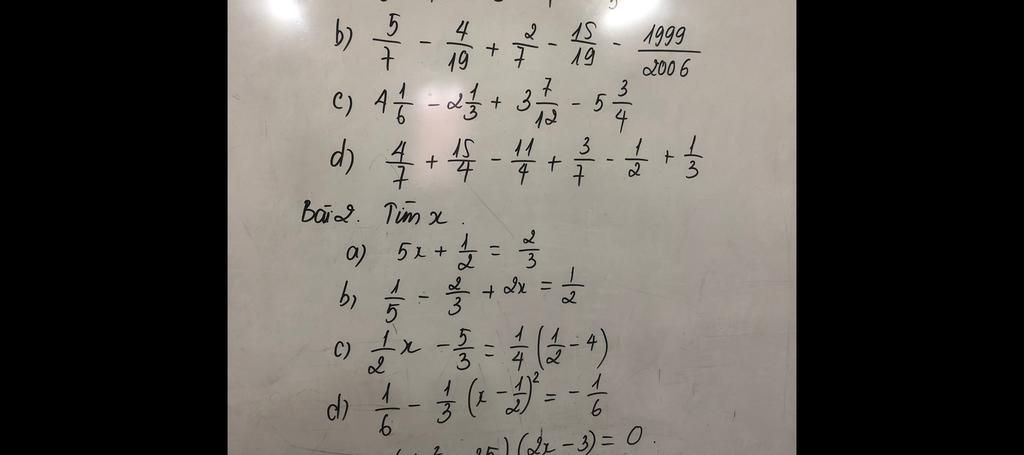 b) 5/7 - 4/19 + 2/7 - 15/19 - 1999/2006
c) 4 1/6 - 2 1/3 + 3 7/12 - 5 3/4
d) 4/7 + 15/4 - 11/4 + 3/7 - 1/2 + 1/3
Bài 2. Tìm x.
a) 5x + 1/2 = 2/3
b) 1/5 - 2/3 + 2x = 1/2
c) 1/2 x - 5/3 = 1/4 (1/2 - 4)
d) 1/6 - 1/3 (x - 1/2)² = - 1/6
(2x - 3) = 0.